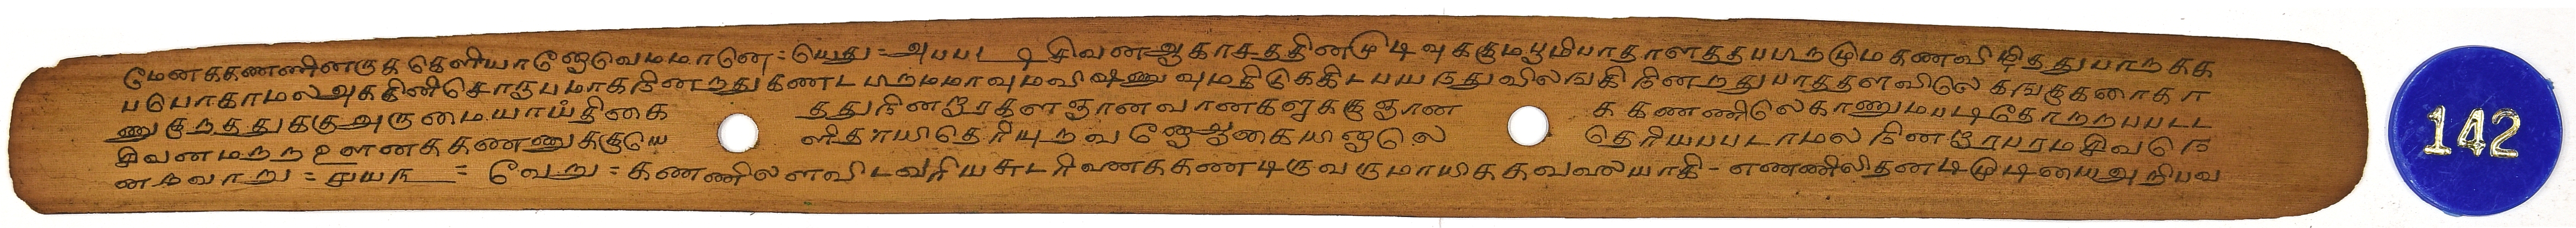 மெனககணணினருகதெளியாஜெவெமமானெ = யெது = அபபடடி சிவனஆகாசததினமுடிவுககுமபூமிபாதாளததபபுறமுமகணவிழிததுபாறகக
படபொகாமலஅககினிசொருபமாகநினறதுகணட பிறமமாவுமவிஷணுவுமகிடுககிடபயநதுவிலஙகி நினறதுபாததளவிலெ கஙகுகனாகா
ணுகுறததுககுஅருமையாயதிகை ததுநினறாரதள ஞானவானகளுககுஞான க கணணிலெகாணுமபடிதோறறபபடட
சிவனமறற உளனககணணுககுயெ ளிதாயிதெரியுறவ ணெஆகையினாலெ தெரியபபடாமல நினறாரபரமசிவனெ
னறவாறு = ௫யந = வேறு = கணணிலளவிடவரியசுடரிவணககணடிருவருமாயிககவலையாகி - எணணிலிதனடிமுடியைஅறிபவ
142